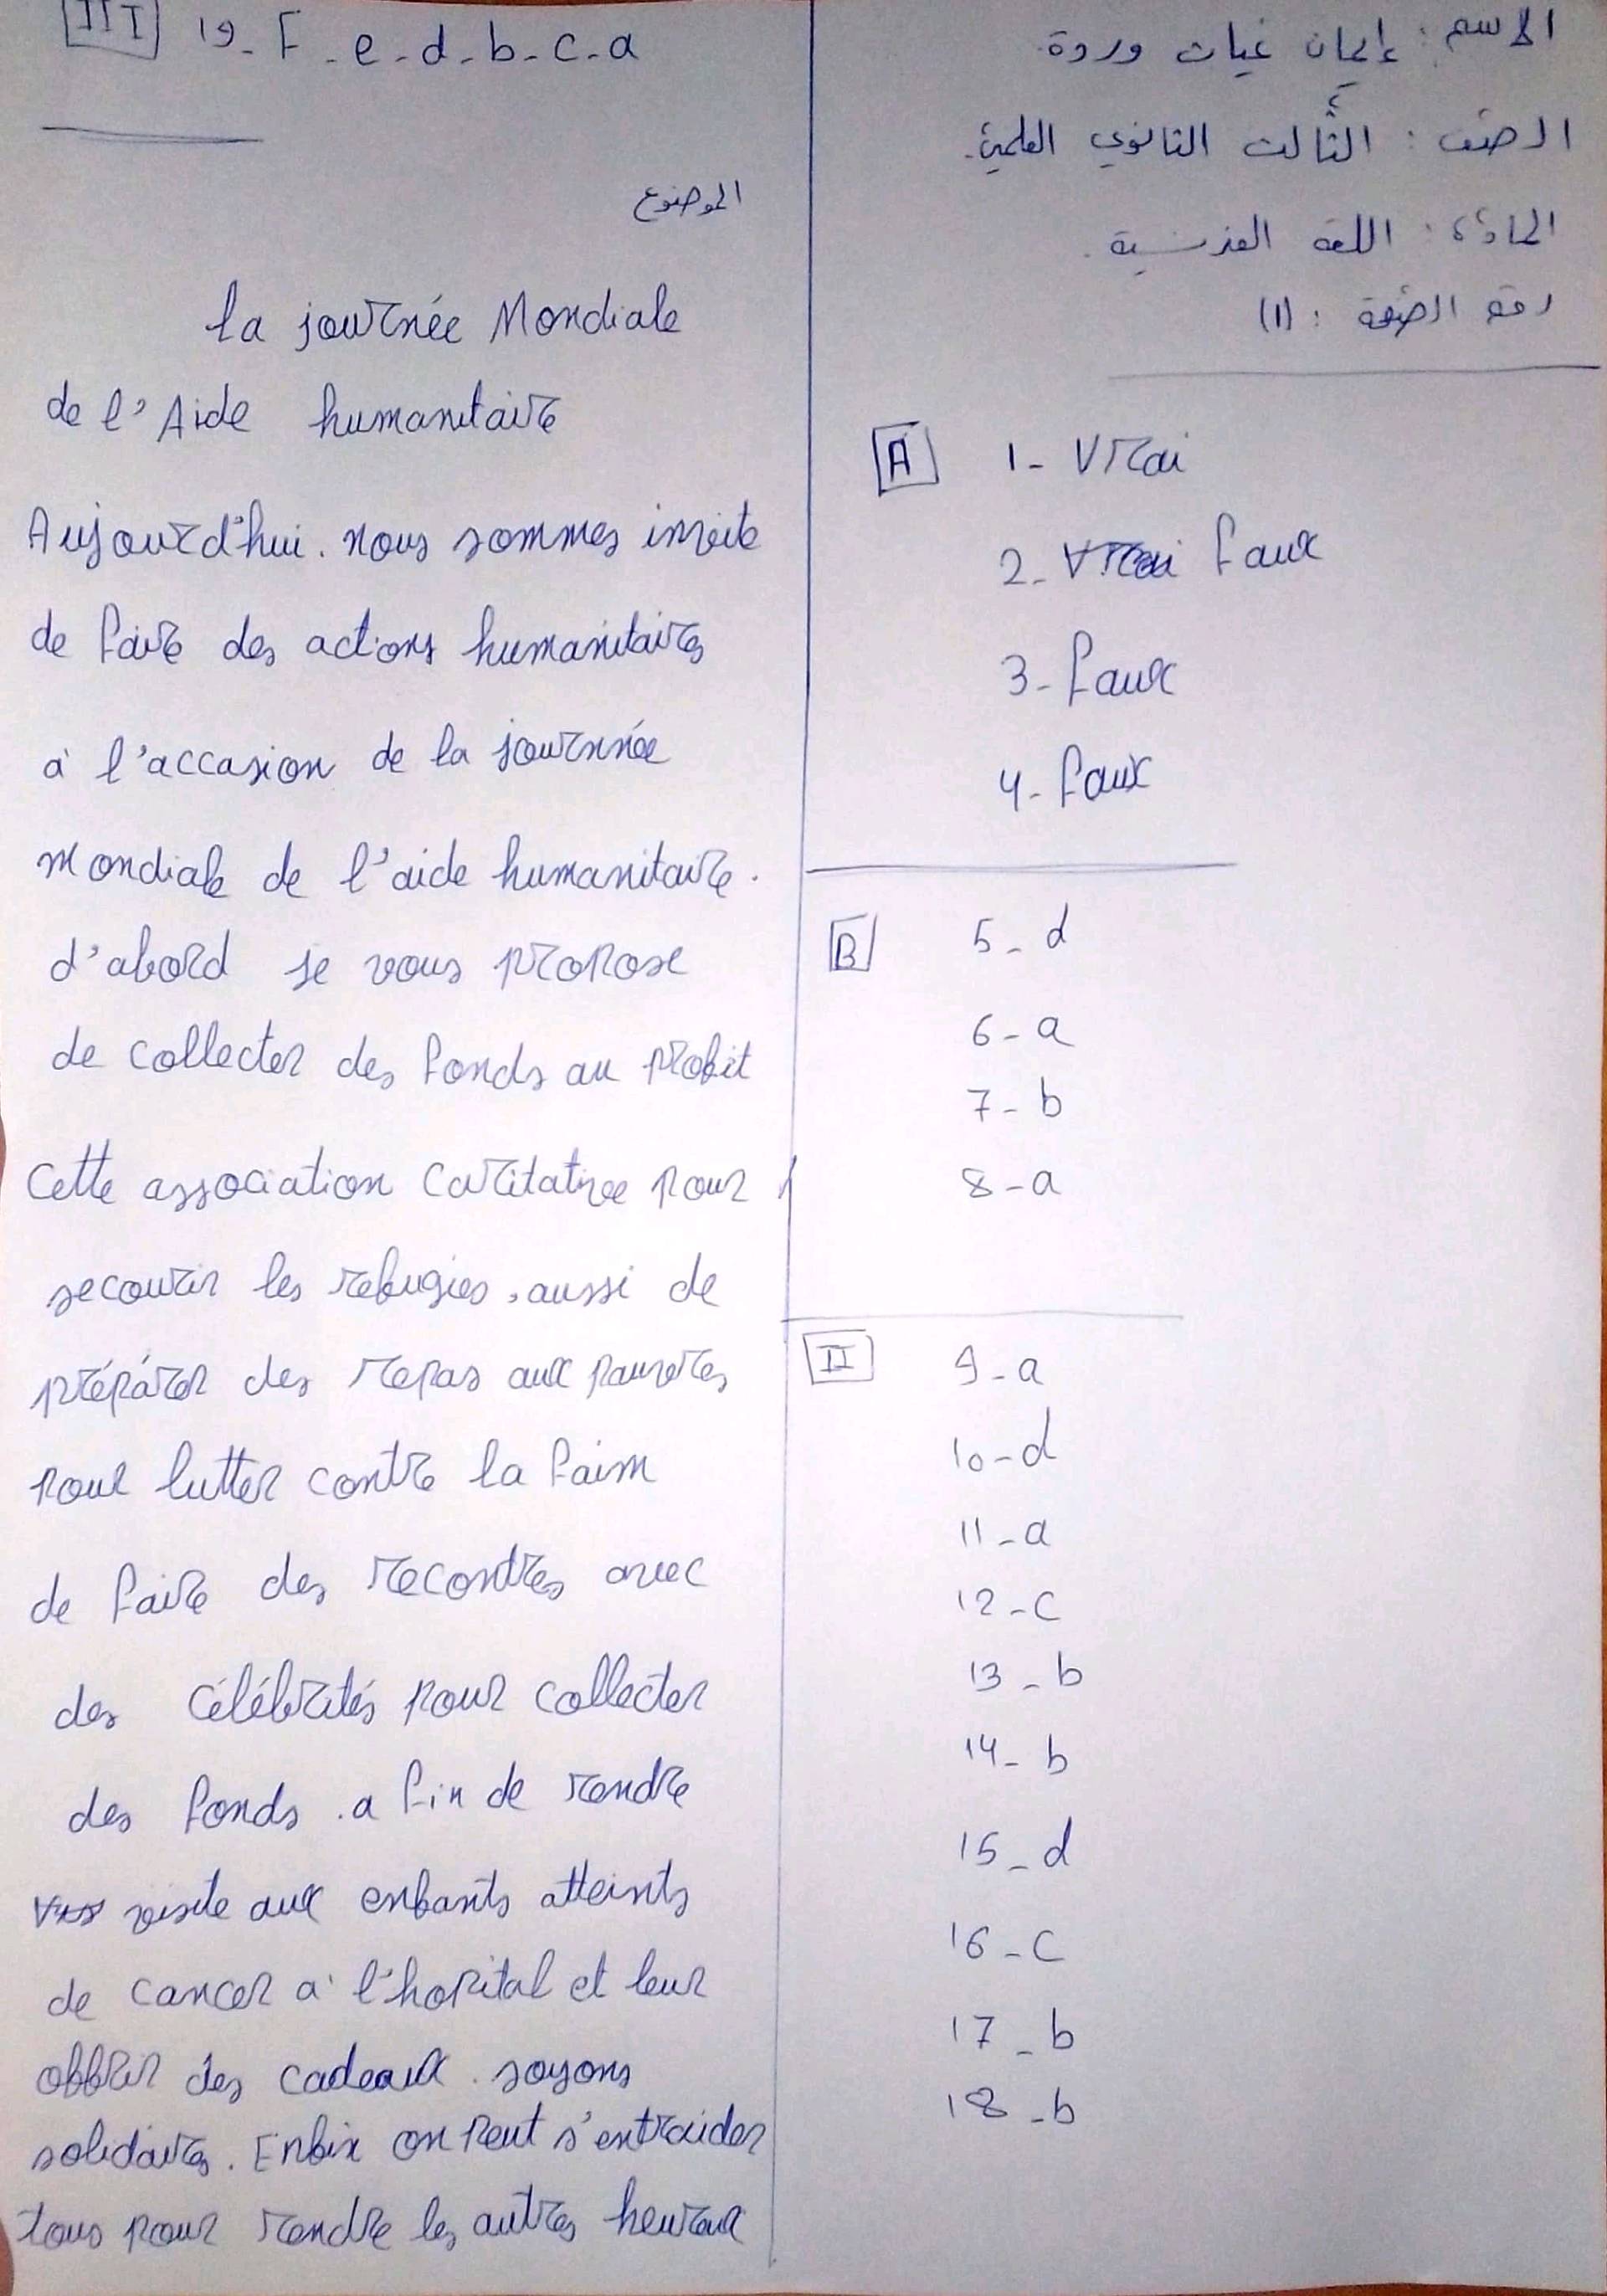 الاسم : إيمان غياث وردة.
الصف : الثالث الثانوي العلمي.
المادة : اللغة الفرنسية.
رقم الصفحة : (1)
A 1- Vrai
2- Vrai faux
3- faux
4- faux
B 5- d
6- a
7- b
8- a
II 9- a
10- d
11- a
12- c
13- b
14- b
15- d
16- c
17- b
18- b
III 19- F-e-d-b-c-a
الموضوع
la journée Mondiale
de l'Aide humanitaire
Aujourd'hui. nous sommes invite
de faire des actions humanitaires
à l'accasion de la journnée
Mondiale de l'aide humanitaire.
d'abord je vous propose
de collecter des fonds au profit
Cette association caritative pour
secourir les refugies, aussi de
prépárer des repas aux pauvres
pour lutter contre la faim
de faire des recontres avec
des célébrités pour collecter
des fonds. a fin de rendre
visite aux enfants atteints
de cancer à l'hopital et leur
offrir des cadeaux. soyons
solidaires. Enfin on peut s'entraider
tous pour rendre les autres heureux